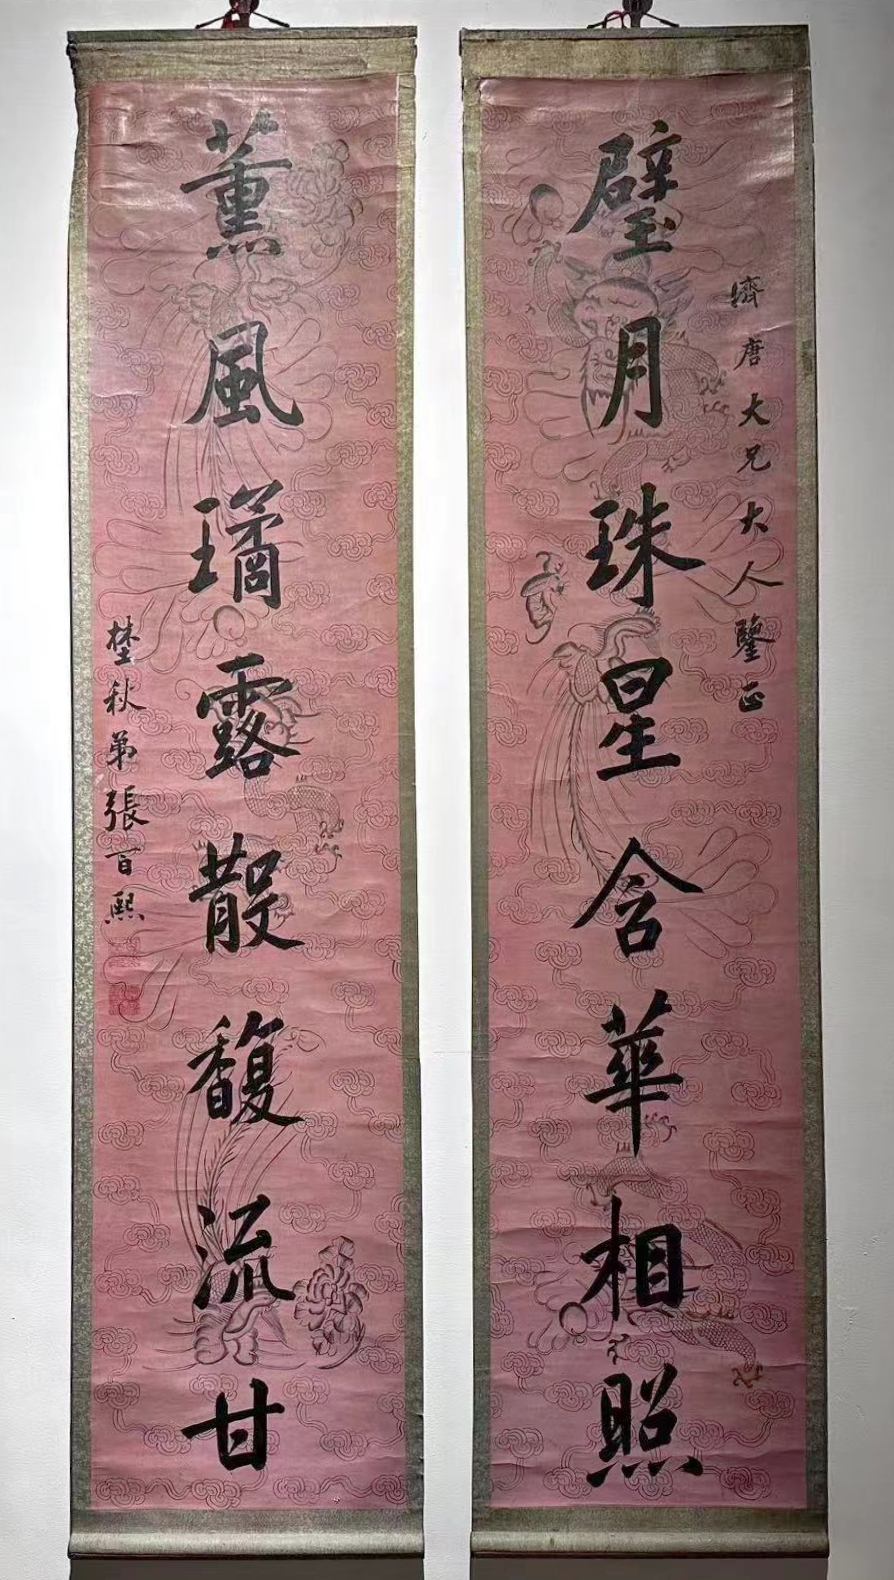 璧月珠星含華相照
濟唐大兄大人鑒正
薰風璚露散馥流甘
埜秋弟張百熙